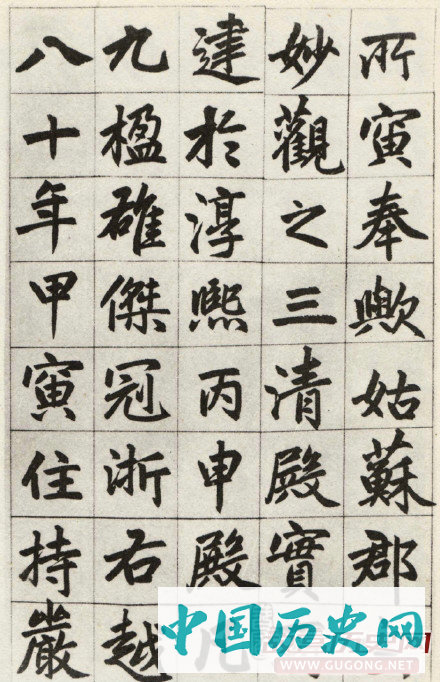 所寅奉歟姑蘇郡
妙觀之三清殿實
建於淳熙丙申殿凡
九楹雄傑冠浙右越
八十年甲寅住持嚴
中国历史网
WWW.GUGONG.NET